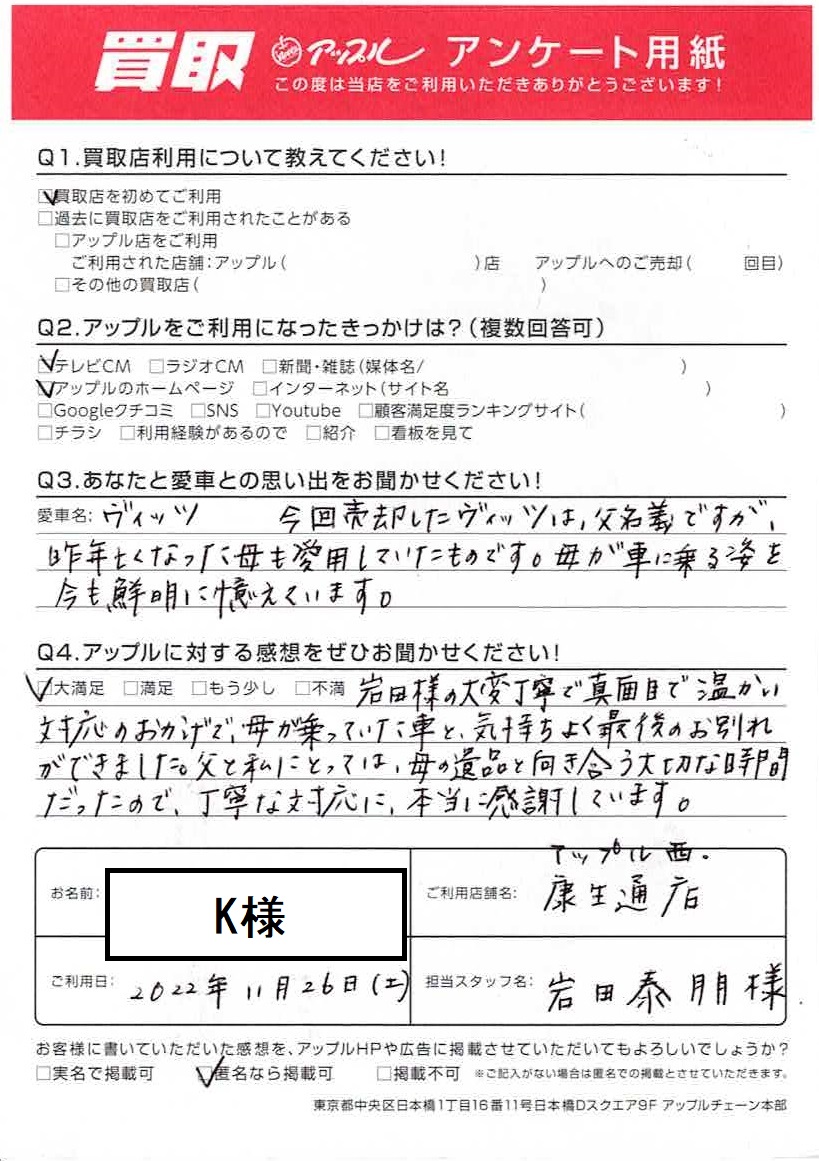 買取 アップル アンケート用紙
この度は当店をご利用いただきありがとうございます!
Q1.買取店利用について教えてください!
☑買取店を初めてご利用
□過去に買取店をご利用されたことがある
□アップル店をご利用
ご利用された店舗:アップル( )店 アップルへのご売却( 回目)
□その他の買取店( )
Q2.アップルをご利用になったきっかけは?(複数回答可)
☑テレビCM □ラジオCM □新聞・雑誌(媒体名/ )
☑アップルのホームページ □インターネット(サイト名 )
□Googleクチコミ □SNS □Youtube □顧客満足度ランキングサイト( )
□チラシ □利用経験があるので □紹介 □看板を見て
Q3.あなたと愛車との思い出をお聞かせください!
愛車名:ヴィッツ 今回売却したヴィッツは、父名義ですが、
昨年亡くなった母も愛用していたものです。母が車に乗る姿を
今も鮮明に憶えています。
Q4.アップルに対する感想をぜひお聞かせください!
☑大満足 □満足 □もう少し □不満 岩田様の大変丁寧で真面目で温かい
対応のおかげで、母が乗っていた車と、気持ちよく最後のお別れ
ができました。父と私にとっては、母の遺品と向き合う大切な時間
だったので、丁寧な対応に、本当に感謝しています。
お名前: K様
ご利用店舗名: アップル西.
康生通店
ご利用日: 2022年11月26日(土)
担当スタッフ名: 岩田泰朋様
お客様に書いていただいた感想を、アップルHPや広告に掲載させていただいてもよろしいでしょうか?
□実名で掲載可 ☑匿名なら掲載可 □掲載不可 ※ご記入がない場合は匿名での掲載とさせていただきます。
東京都中央区日本橋1丁目16番11号日本橋Dスクエア9F アップルチェーン本部